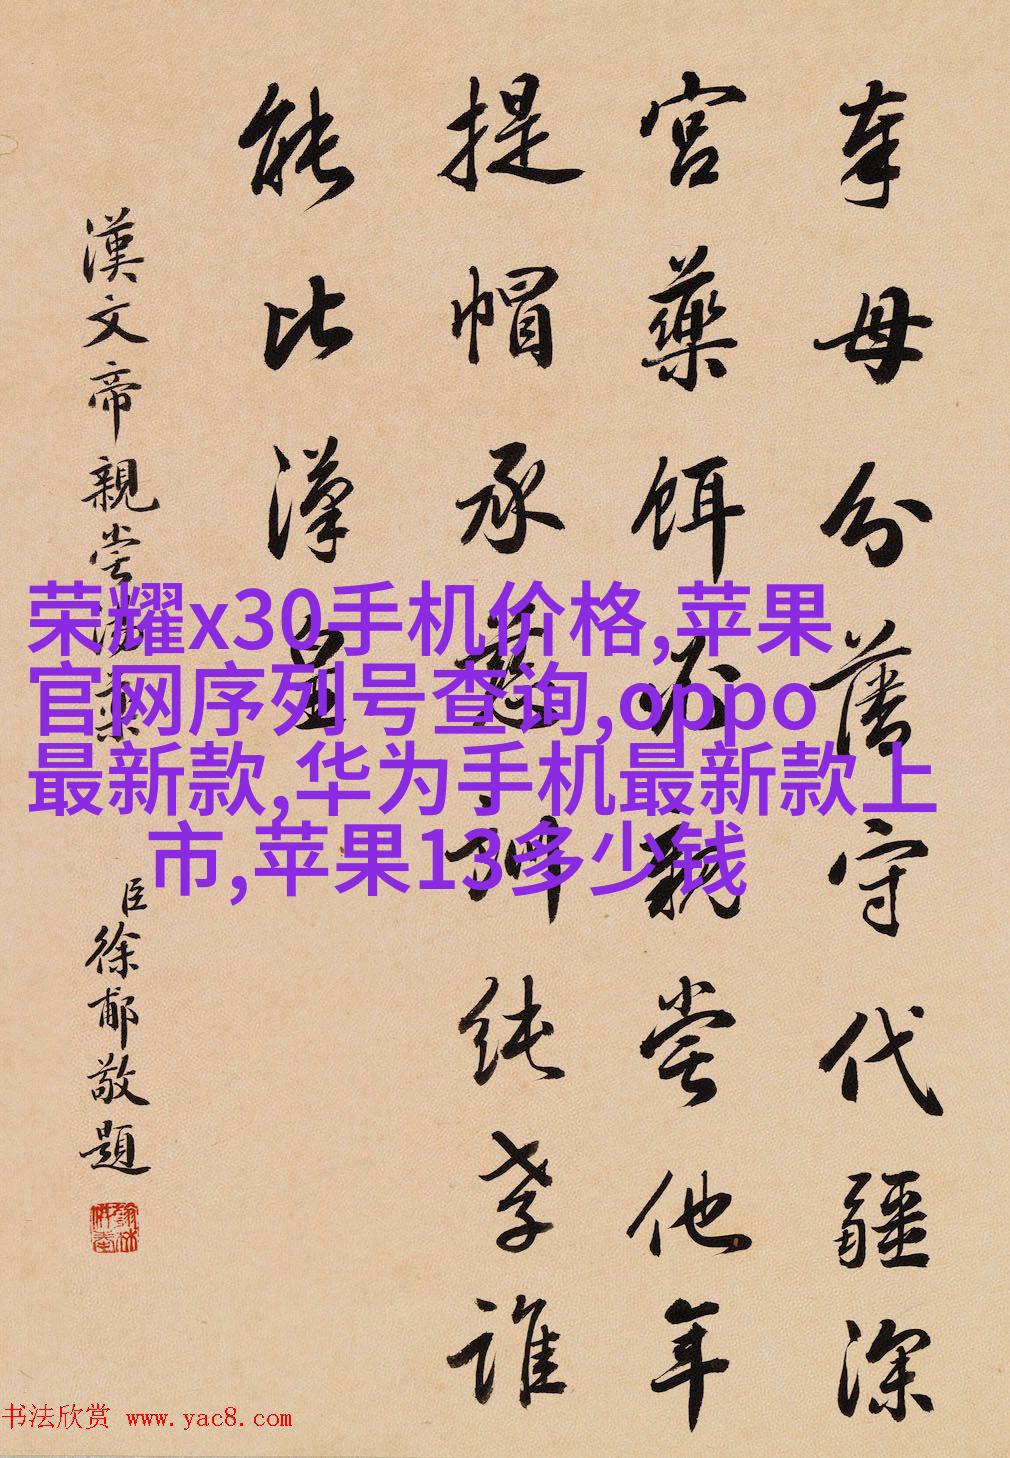 奉母分藩守代疆深
宮藥餌必親嘗他年
提帽承慈純孝誰
能比漢皇
漢文帝親嘗湯藥
臣徐郙敬題
荣耀x30手机价格,苹果
官网序列号查询,oppo
最新款,华为手机最新款上
市,苹果13多少钱
书法欣赏 www.yac8.com